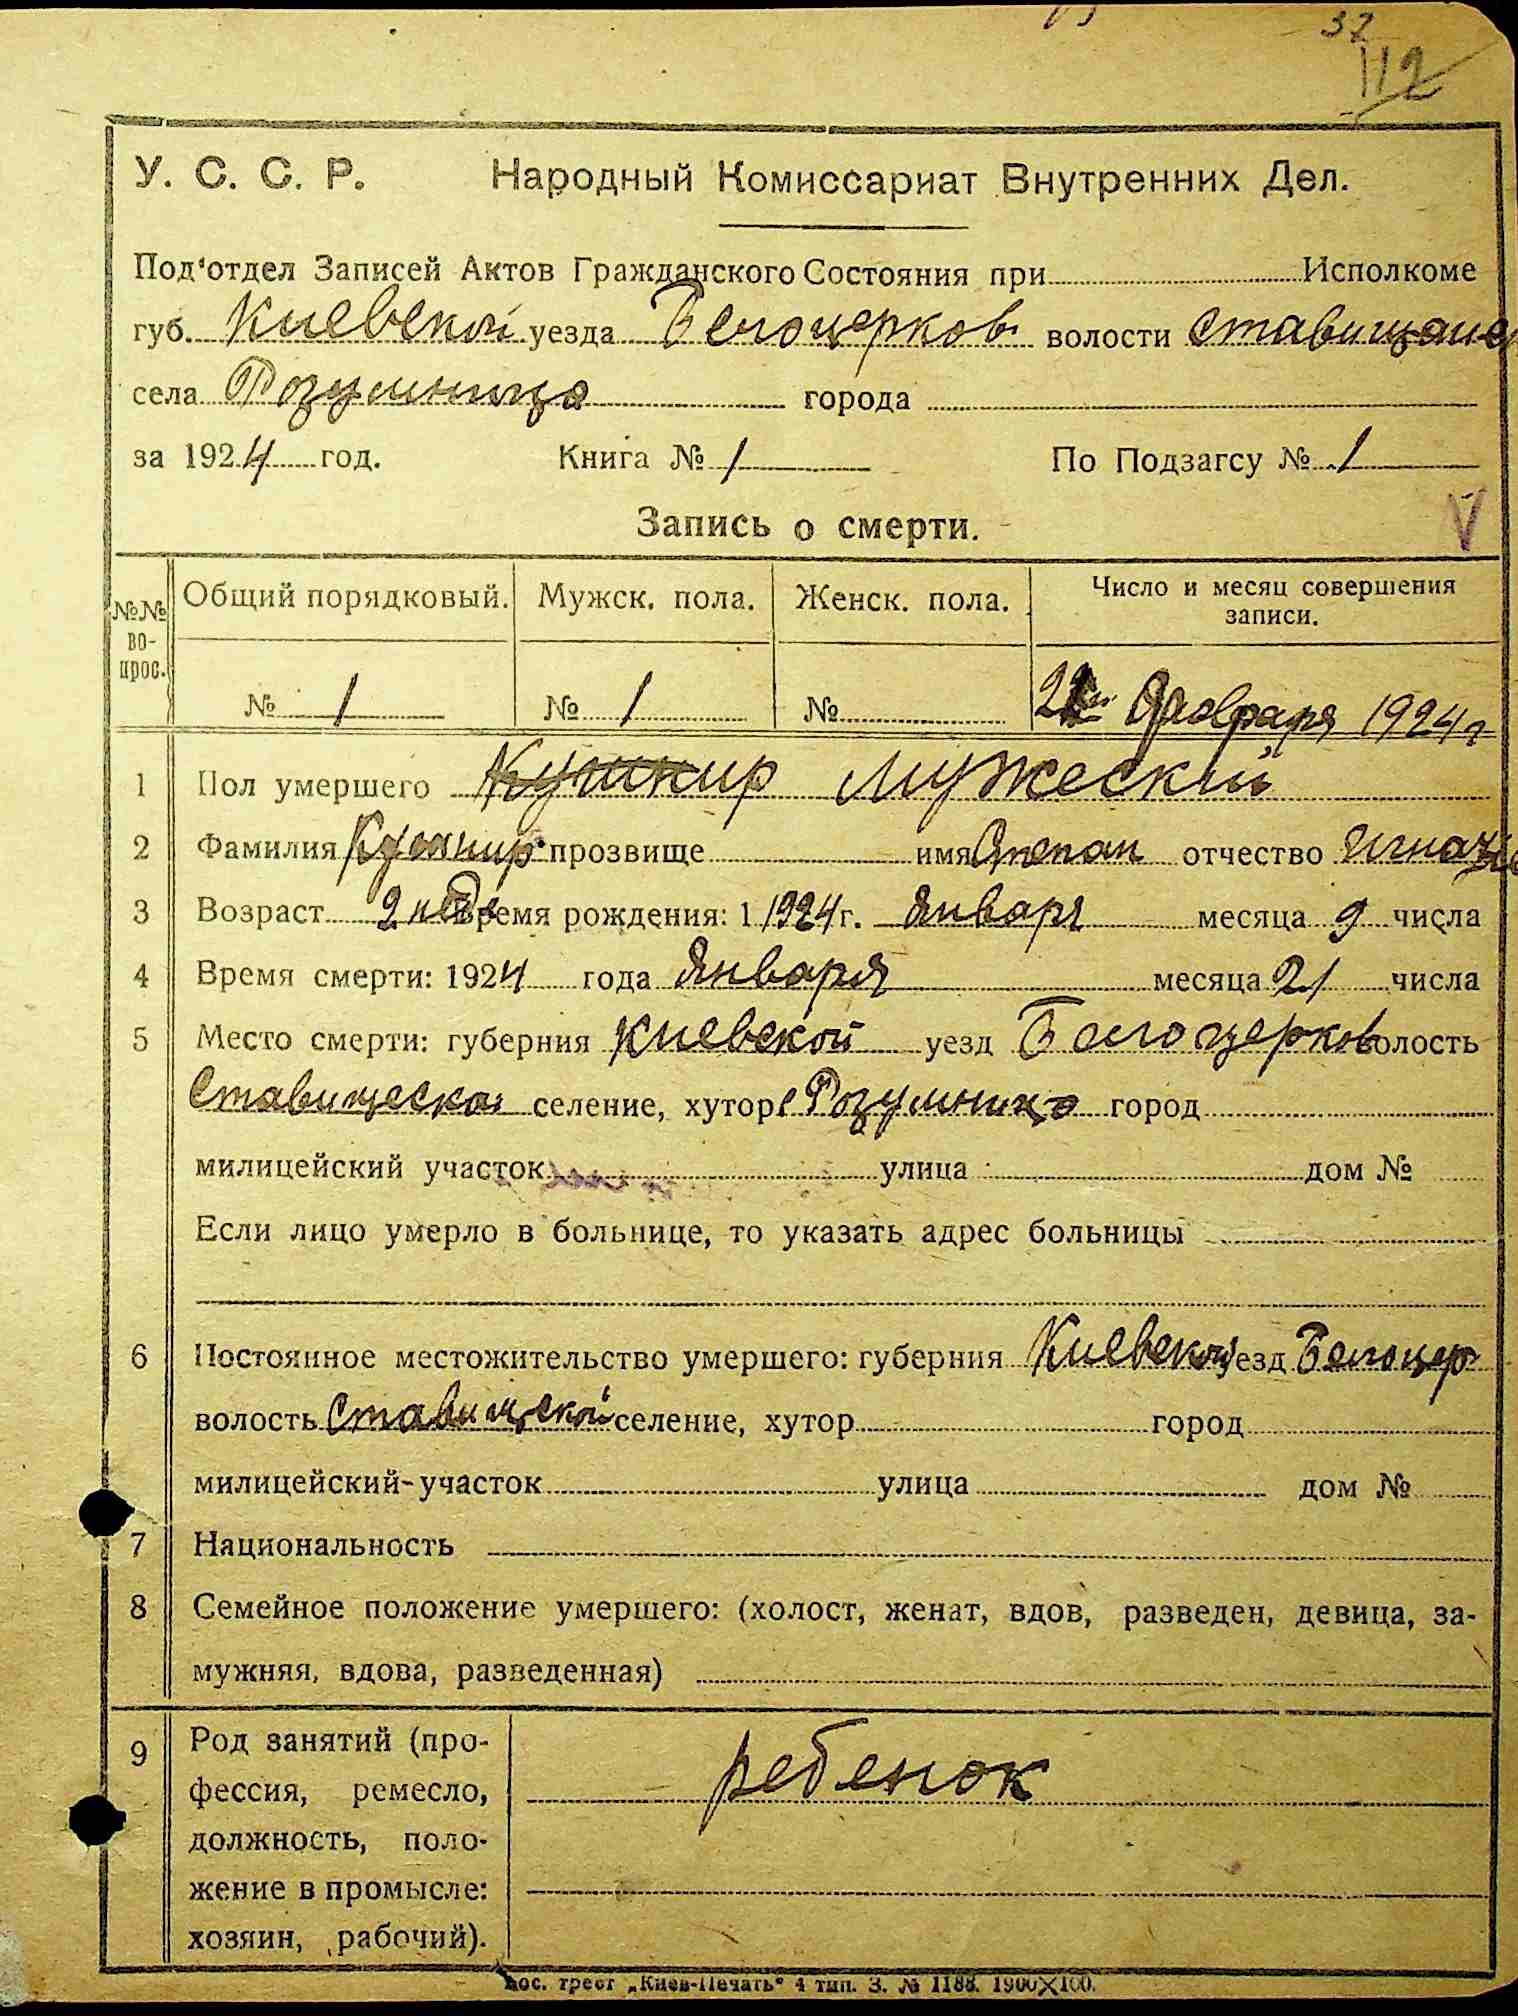 37
112
У. С. С. Р. Народный Комиссариат Внутренних Дел.
Под'отдел Записей Актов Гражданского Состояния при Исполкоме
губ. Киевской уезда Белоцерков волости Ставищанс
села Розумница города
за 1924 год. Книга № 1 По Подзагсу № 1
Запись о смерти.
№№ во- прос. Общий порядковый. Мужск. пола. Женск. пола. Число и месяц совершения записи.
№ 1 № 1 № Февраря 1924 г
1 Пол умершего Кушнир Мужеский
2 Фамилия Кушнир прозвище имя Степан отчество Игнать
3 Возраст 2 нед Время рождения: 1 1924 г. Января месяца 9 числа
4 Время смерти: 1924 года Января месяца 21 числа
5 Место смерти: губерния Киевской уезд Белоцерков волость
Ставищеской селение, хутор Розумница город
милицейский участок улица дом №
Если лицо умерло в больнице, то указать адрес больницы
6 Постоянное местожительство умершего: губерния Киевской уезд Белоцер
волость Ставищской селение, хутор город
милицейский-участок улица дом №
7 Национальность
8 Семейное положение умершего: (холост, женат, вдов, разведен, девица, за-
мужняя, вдова, разведенная)
9 Род занятий (про-
фессия, ремесло, ребенок
должность, поло-
жение в промысле:
хозяин, рабочий).
Гос. трест „Киев-Печать" 4 тип. З. № 1188. 1900×100.